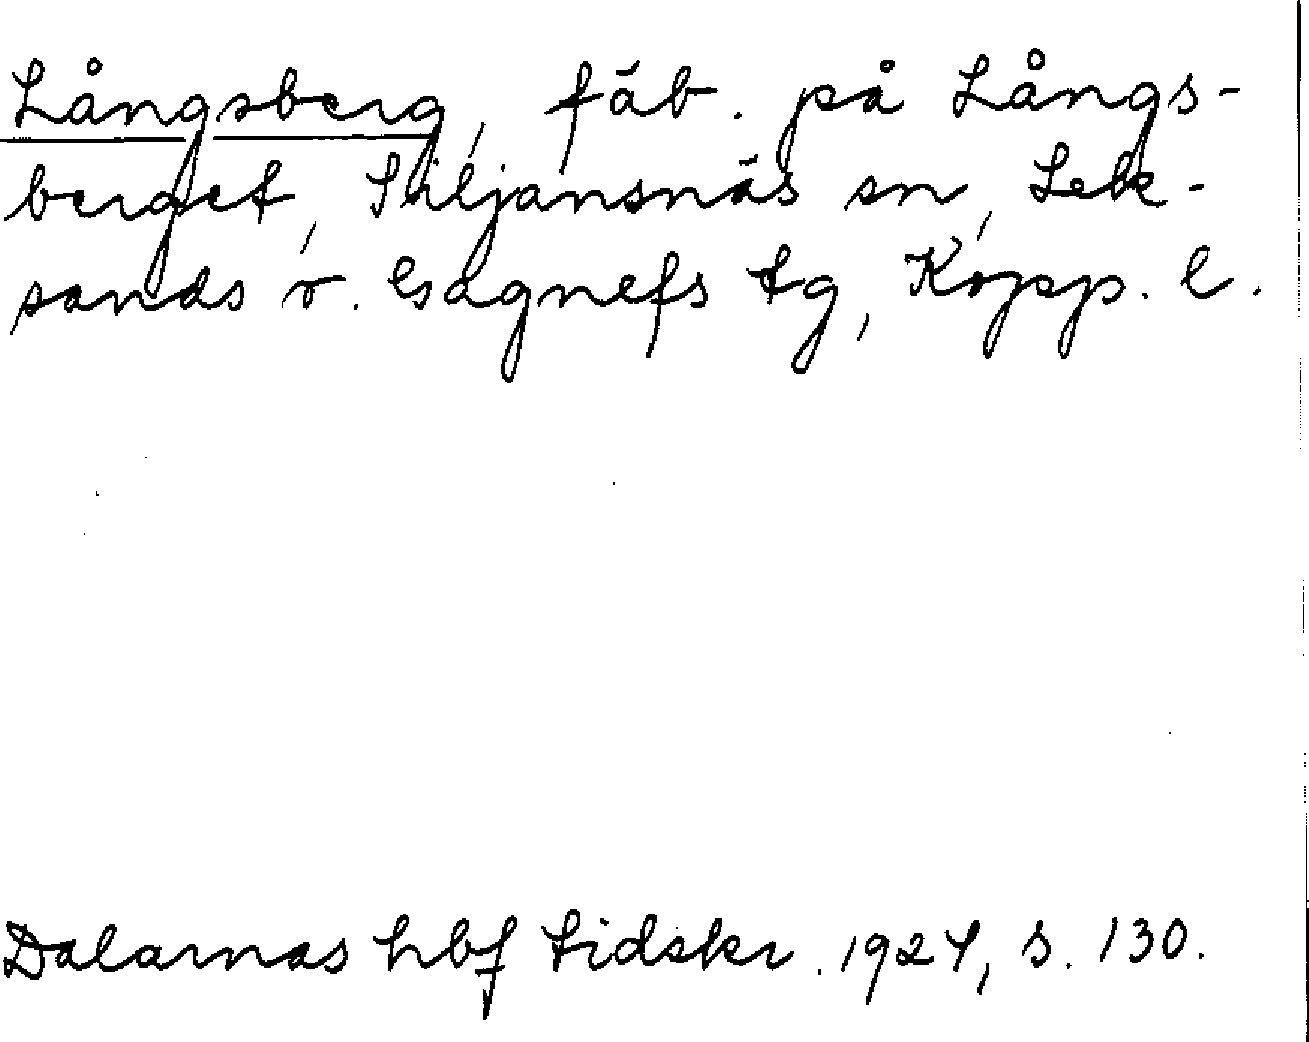 Långsberg, fäb. på Långs-
berget, Siljansnäs sn, Lek-
sands o. Gagnefs tg, Kopp. l.
Dalarnas hbf tidskr. 1924, s. 130.